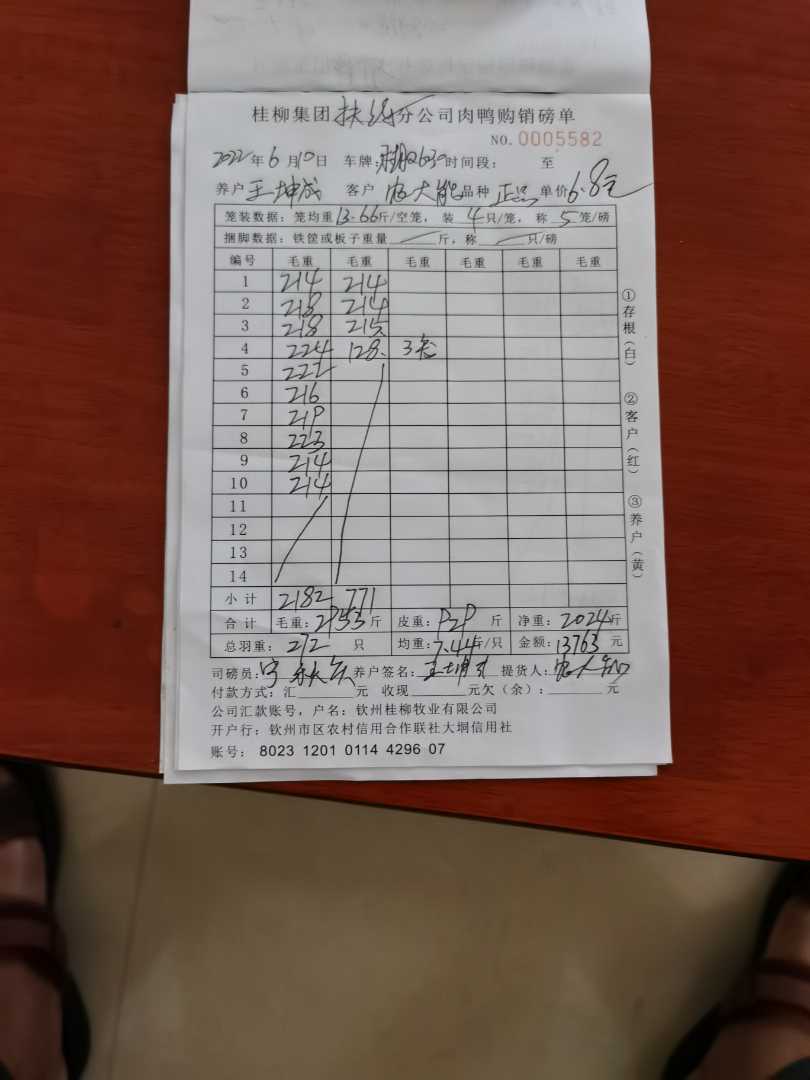 桂柳集团扶绥分公司肉鸭购销磅单
NO. 0005582
2022年6月10日 车牌: 时间段: 至
养户王坤成 客户 大能 品种 正品 单价6.8元
笼装数据: 笼均重13.66斤/空笼, 装4只/笼, 称5笼/磅
捆脚数据: 铁筐或板子重量 斤, 称 只/磅
编号 毛重 毛重 毛重 毛重 毛重 毛重
1 214 214
2 218 214
3 218 215
4 224 128. 3笼
5 222
6 216
7 219
8 223
9 214
10 214
11
12
13
14
小计 2182 771
合计 毛重: 2953斤 皮重: 929斤 净重: 2024斤
总羽重: 272只 均重: 7.44斤/只 金额: 13763元
司磅员: 养户签名: 王坤成 提货人:
付款方式: 汇 元 收现 元欠(余): 元
公司汇款账号, 户名: 钦州桂柳牧业有限公司
开户行: 钦州市区农村信用合作联社大垌信用社
账号: 8023 1201 0114 4296 07
①存根(白) ②客户(红) ③养户(黄)